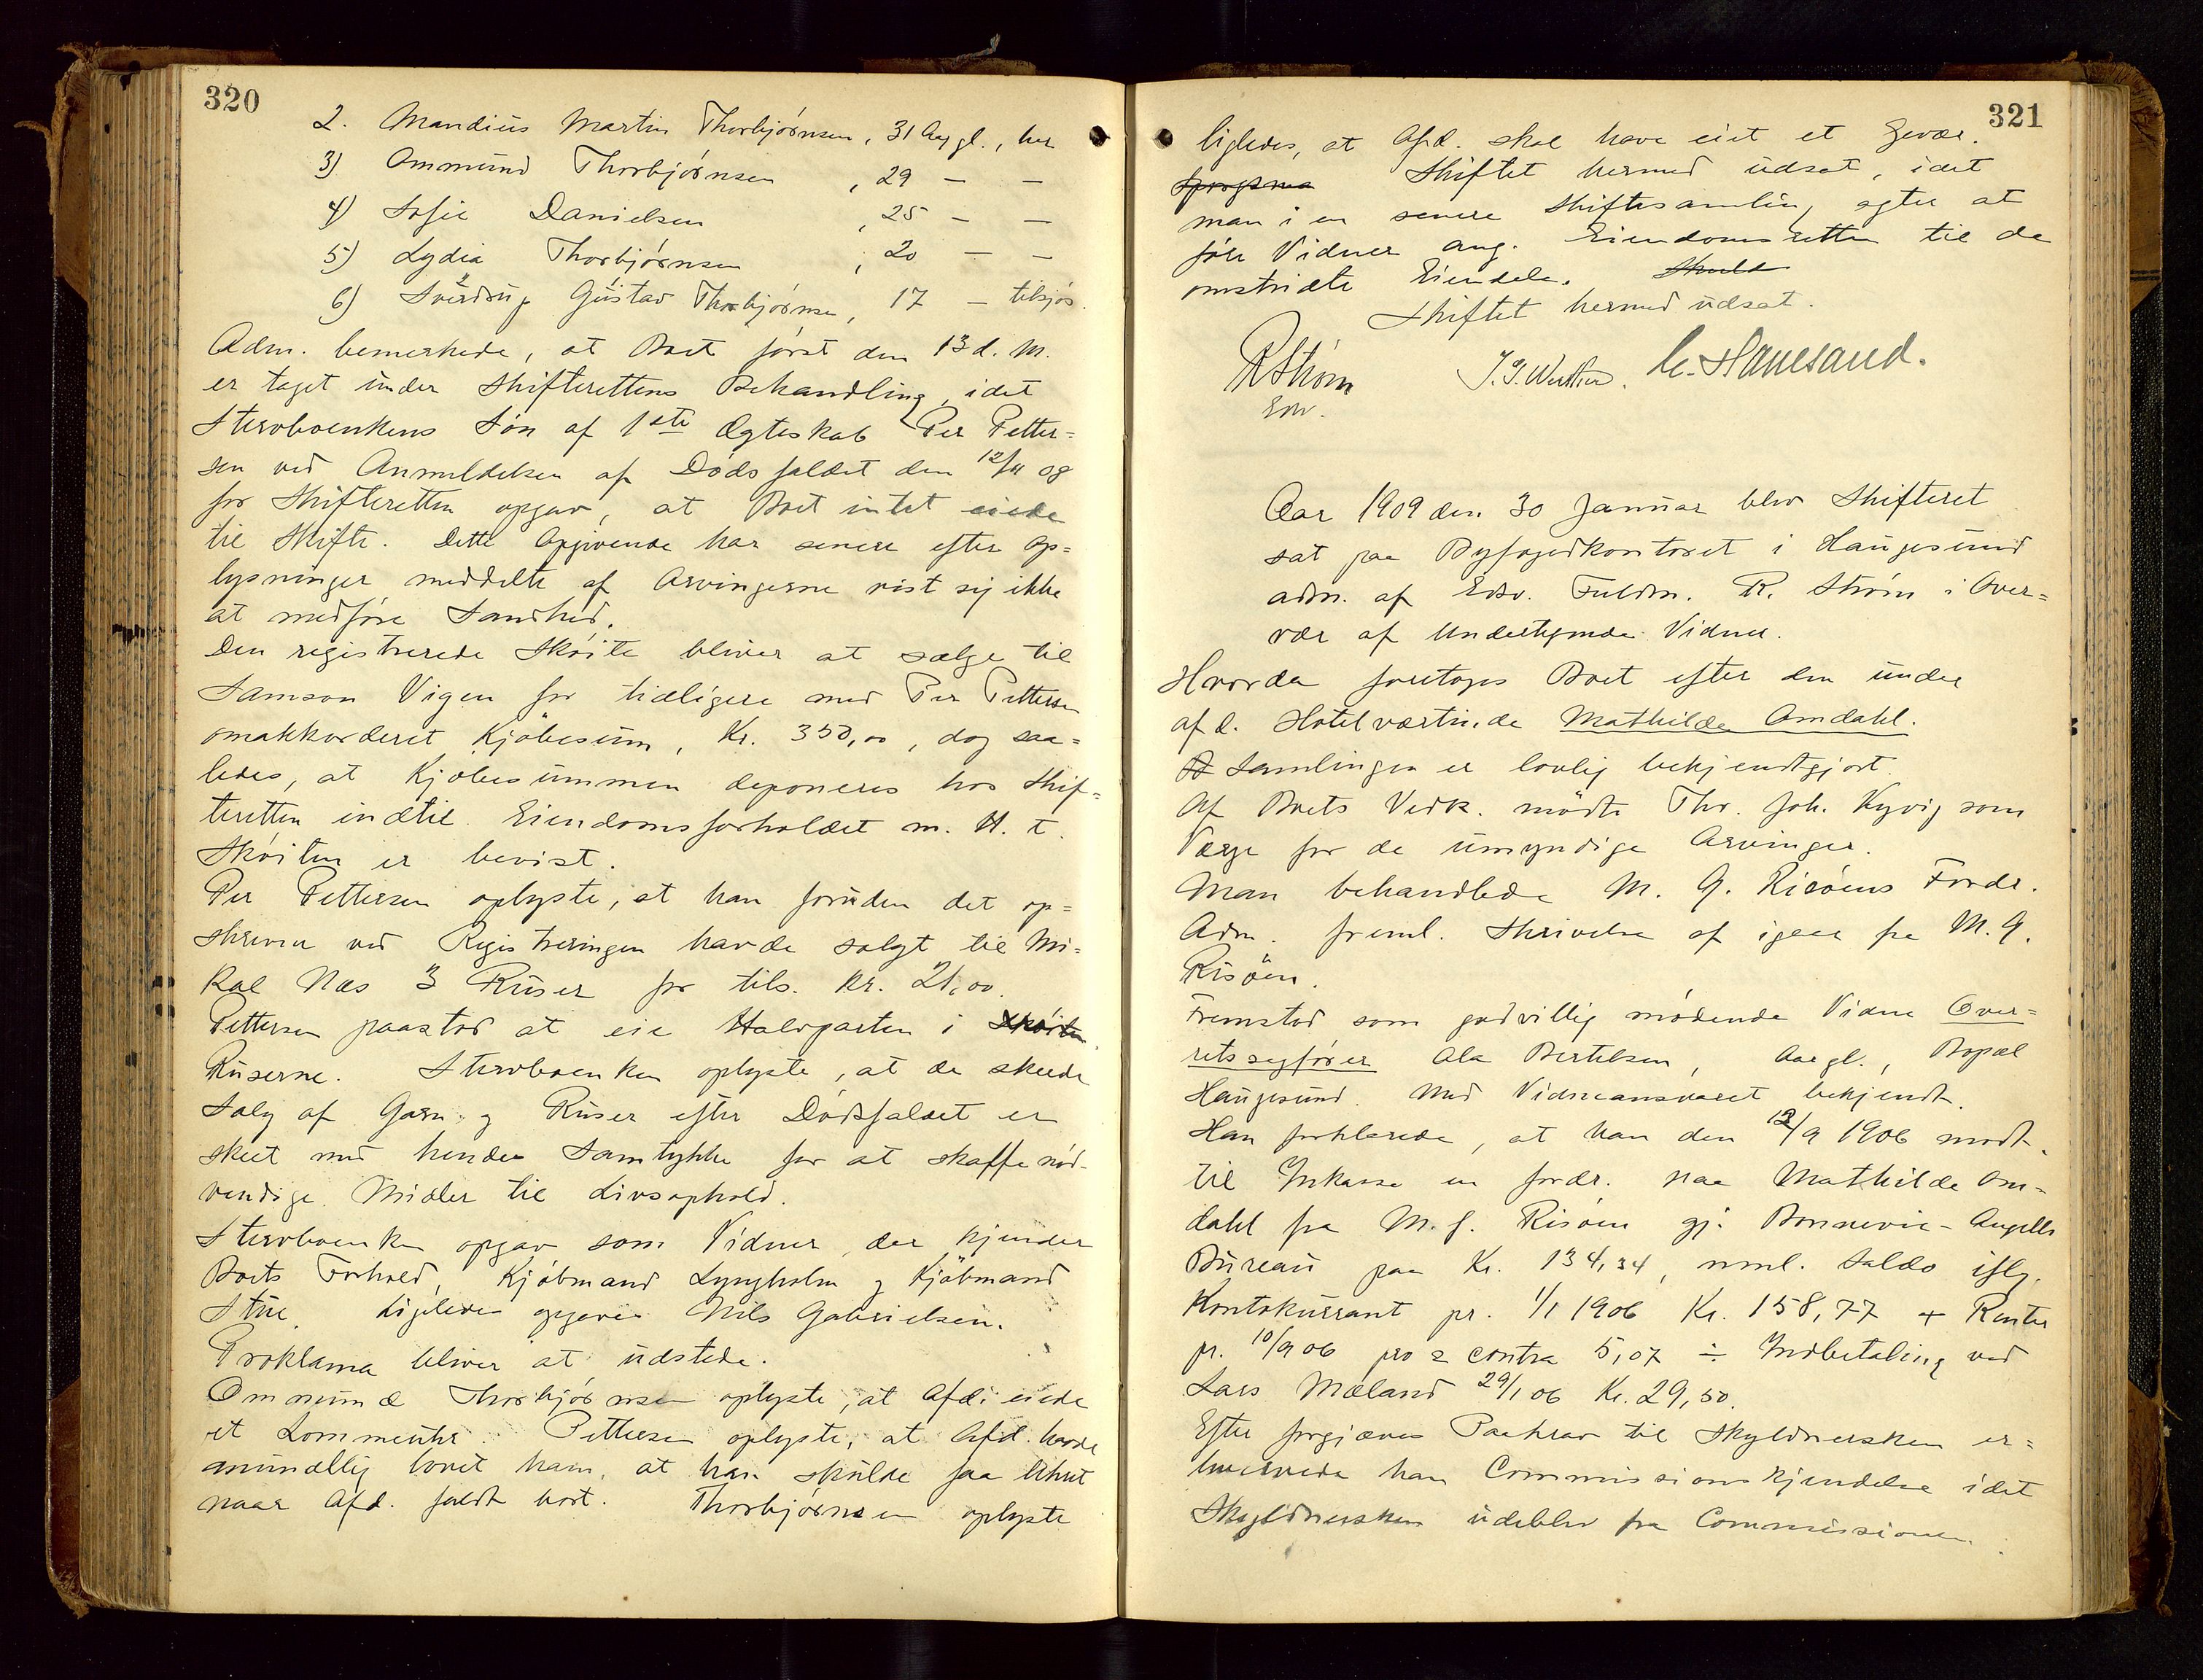 320
2. Mandius Martin Thorbjörnsen, 31 Aar gl., her
3) Ommund Thorbjörnsen , 29 — —
4) Sofie Danielsen , 25 — —
5) Lydia Thorbjörnsen , 20 — —
6) Sverdrup Gustav Thorbjörnsen, 17 — tilsjös.
Adm. bemerkede, at Boet först den 13 d. M.
er taget under Skifterettens Behandling, idet
Stervboenkens Sön af 1ste Ægteskab Per Petter=
sen ved Anmeldelsen af Dödsfaldet den 12/11 08
for Skifteretten opgav, at Boet intet eiede
til Skifte. Dette Opgivende har senere efter Op=
lysninger meddelte af Arvingerne vist sig ikke
at medföre Sandhed.
Den registrerede Sköite bliver at sælge til
Samson Vigen for tidligere med Per Pettersen
omakkorderet Kjöbesum, Kr. 350,00, dog saa=
ledes, at Kjöbesummen deponeres hos Skif=
teretten indtil Eiendomsforholdet m. H. t.
Sköiten er bevist.
Per Pettersen oplyste, at han foruden det op=
skrevne ved Registreringen havde solgt til Mi=
kal Næs 3 Ruser for tils. kr. 21,00.
Pettersen paastod at eie Halvparten i Sköiten
Ruserne. Stervboenken oplyste, at de skeede
Salg af Garn og Ruser efter Dödsfaldet er
skeet med hendes Samtykke for at skaffe nöd-
vendige Midler til Livsophold.
Stervboenken opgav som Vidner, der kjender
Boets Forhold, Kjöbmand Lyngholm og Kjöbmand
Stue. Ligeledes opgaves Nils Gabrielsen.
Proklama bliver at udstede.
Ommund Thorbjörnsen oplyste, at Afd. eiede
et Lommeuhr. Pettersen oplyste, at Afd. havde
mundtlig lovet ham, at han skulde faa Uhret
naar Afd. faldt bort. Thorbjörnsen oplyste
321
ligledes, at Afd. skal have eiet et Gevær.
Skiftet hermed udsat, idet
man i en senere Skiftesamling agter at
före Vidner ang. Eiendomsretten til de
omstridte Eiendele. Skuld
Skiftet hermed udsat.
R Ström J. J. C. Hanesand.
Edv.
Aar 1909 den 30 Januar blev Skifteret
sat paa Byfogedkontoret i Haugesund
adm. af Edsv. Fuldm. R. Ström i Over=
vær af Undertegnede Vidner.
Hvorda foretoges Boet efter den under
afd. Hotelværtinde Mathilde Amdahl.
Samlingen er lovlig bekjendtgjort.
Af Boets Vedk. mödte Thv. Joh. Kyvig som
Værge for de umyndige Arvinger.
Man behandlede M. G. Risöens Fordr.
Adm. freml. Skrivelse af igaar fra M. G.
Risöen.
Fremstod som godvillig mödende Vidne Over=
retssagförer Ola Bertelsen, Aar gl., Bopæl
Haugesund. Med Vidneansvaret bekjendt.
Han forklarede, at han den 12/9 1906 modt.
til Inkasso en fordr. paa Mathilde Am=
dahl fra M. G. Risöen gj. Bonnevie-Angells
Bureau paa Kr. 134,34, neml. Saldo iflg.
Kontokurrant pr. 1/1 1906 Kr. 158,77 + Renter
pr. 10/9 06 pro & contra 5,07 ÷ Indbetaling ved
Lars Mæland 29/1 06 Kr. 29,50.
Efter forgjæves Paakrav til Skyldnersken er=
hvervede han Commissionskjendelse idet
Skyldnersken udeblev fra Commissionen.